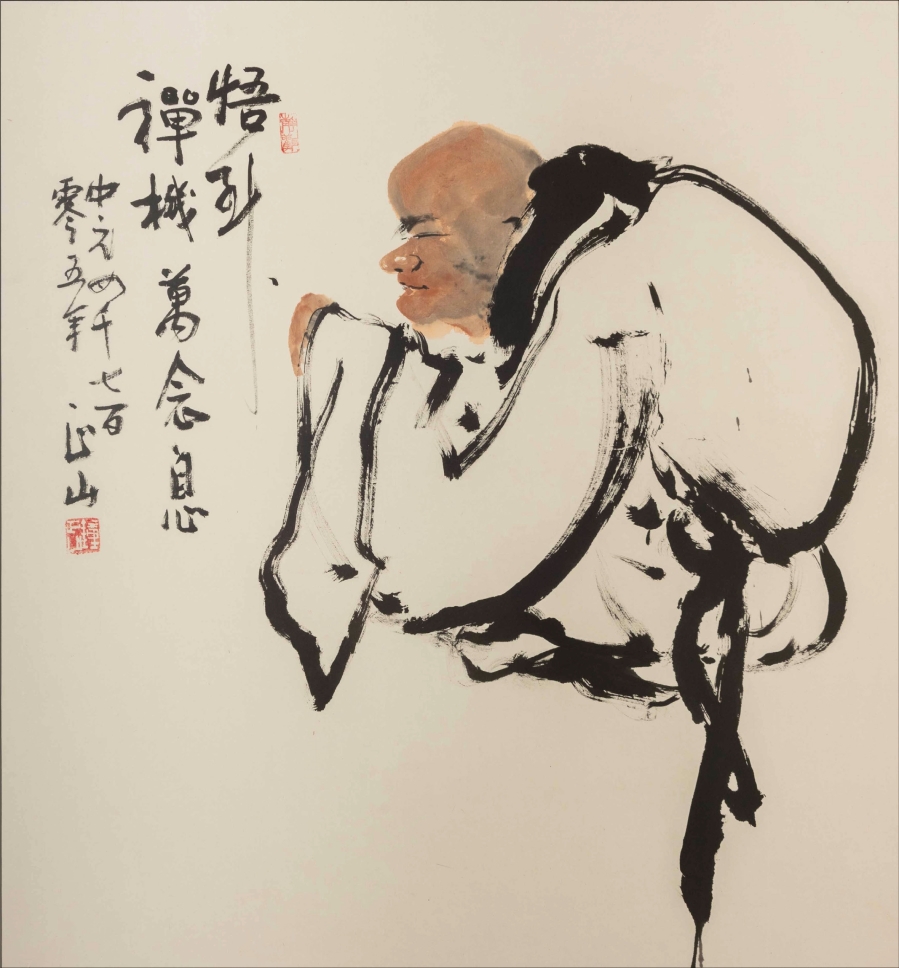 悟到
禪機萬念息
中元四千七百
零五年 山